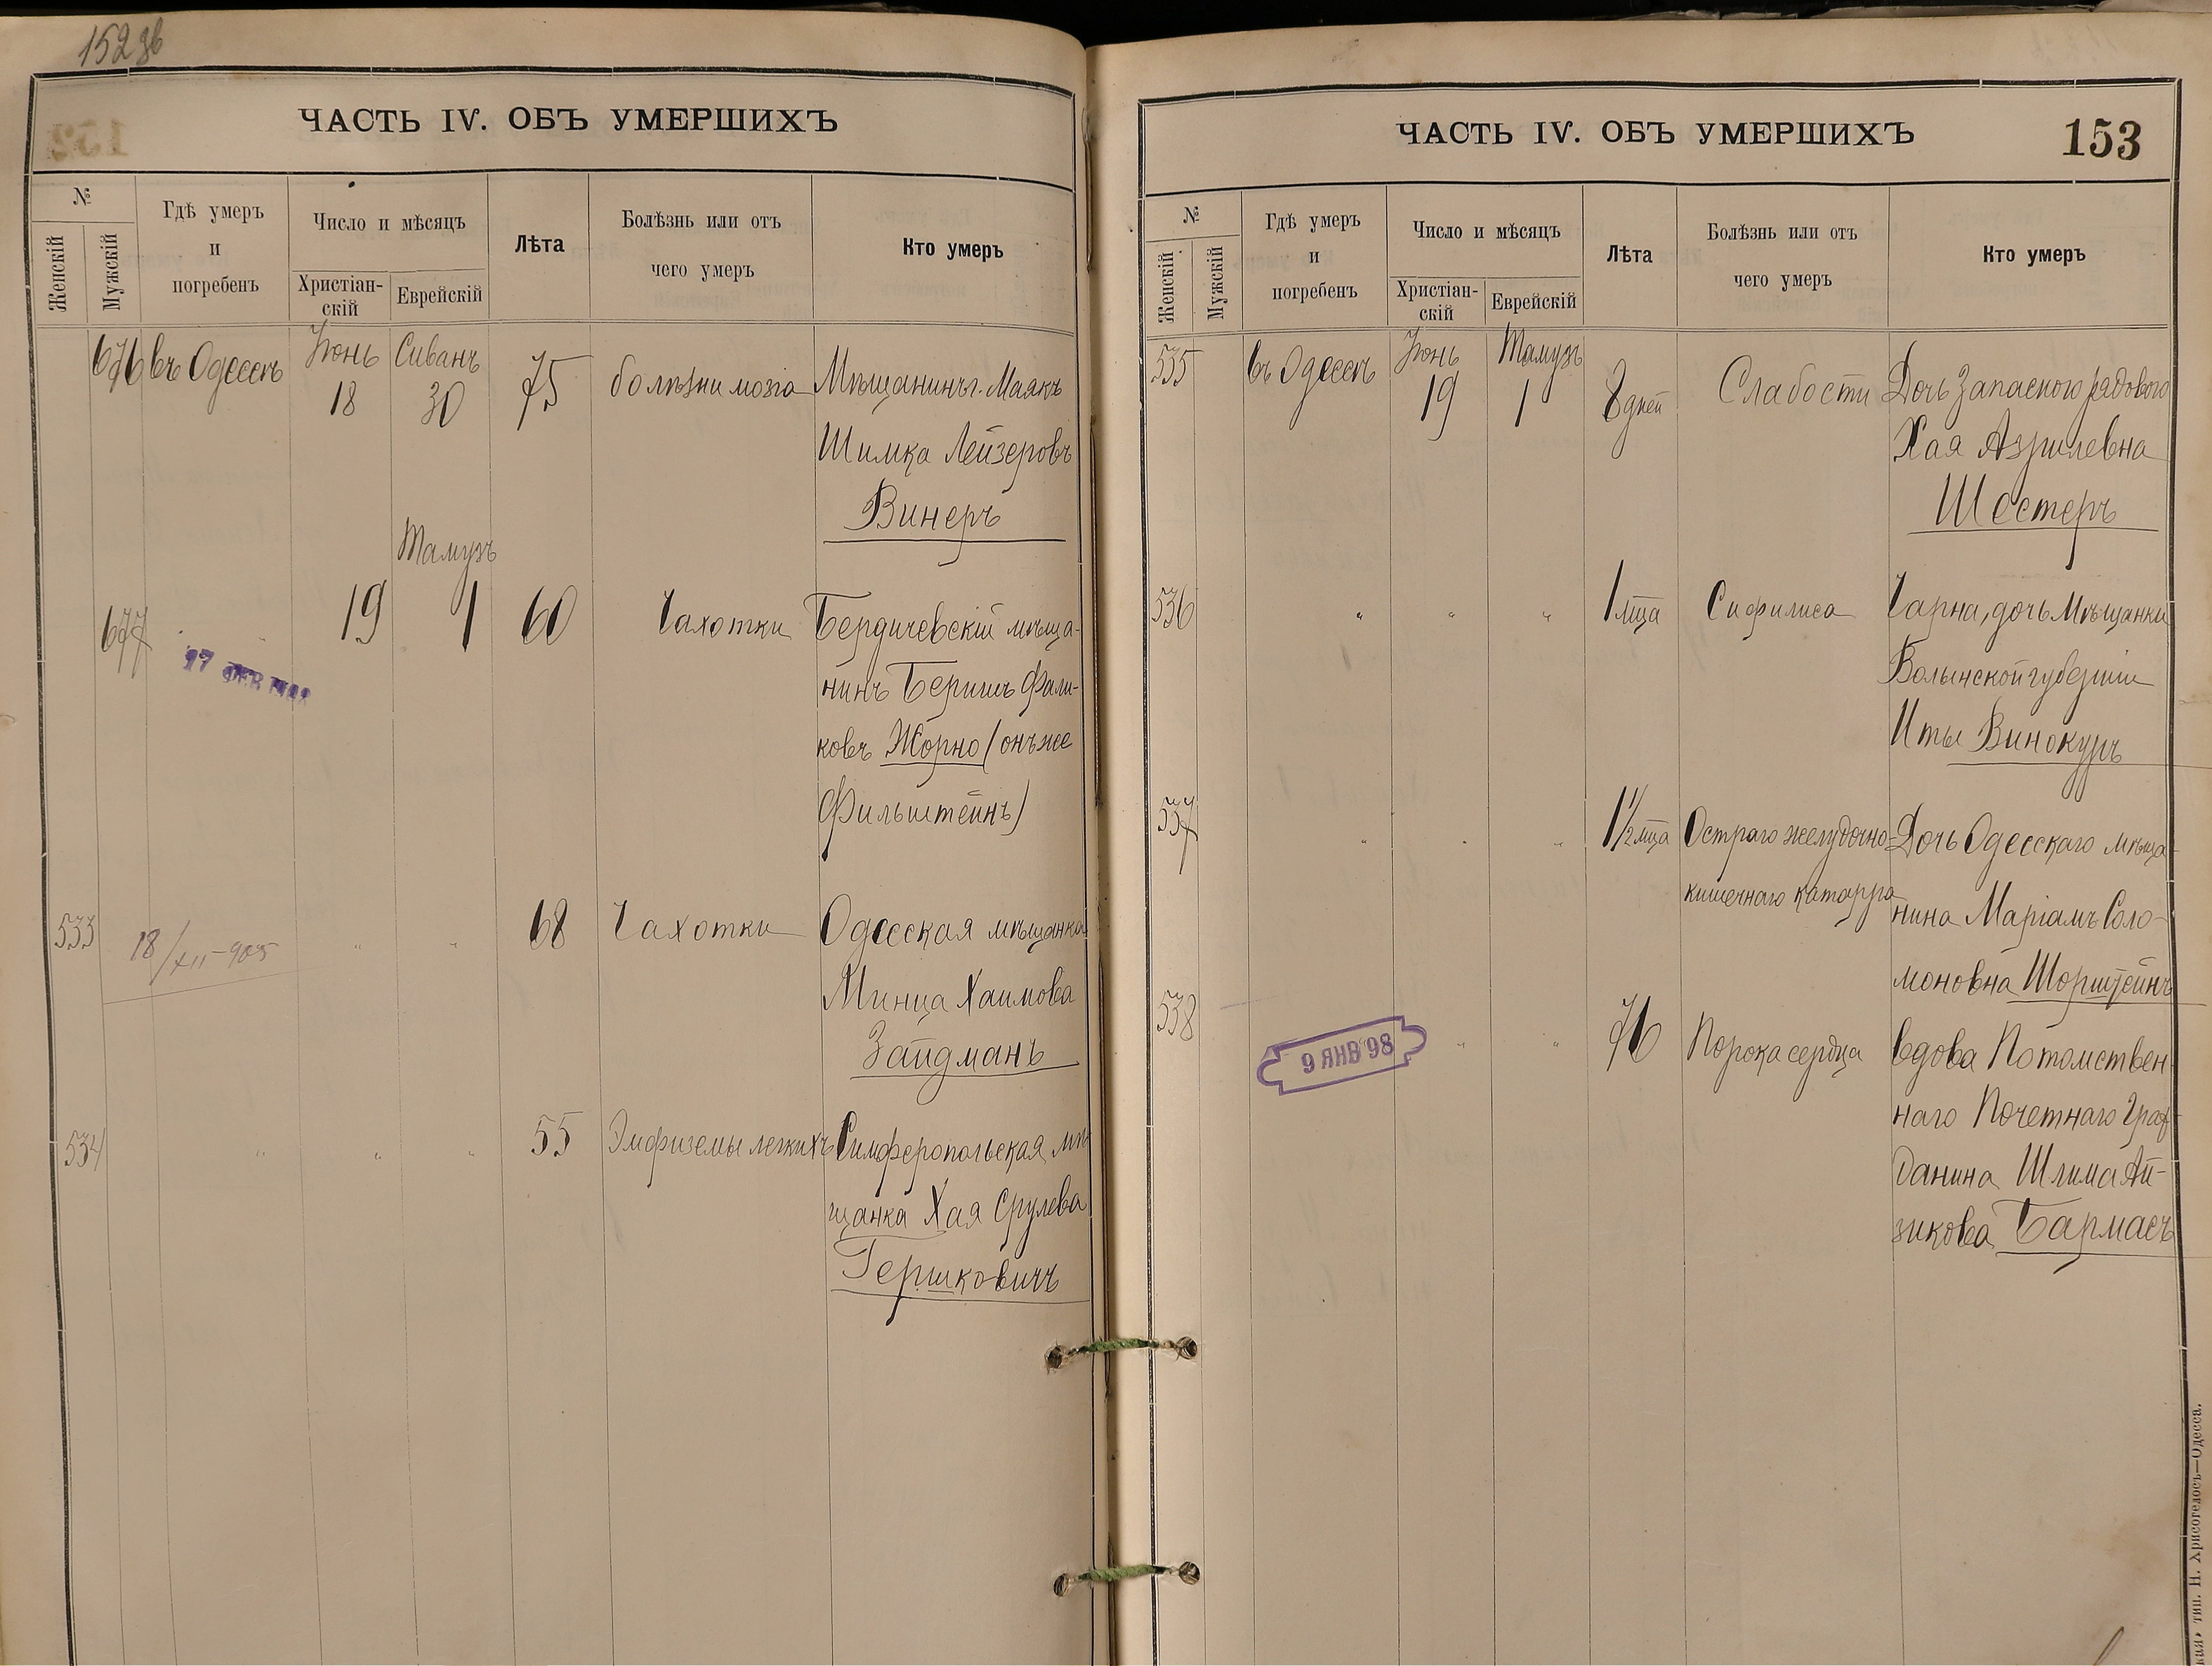 152 зв
ЧАСТЬ IV. ОБЪ УМЕРШИХЪ
№
Женскій
Мужскій
Гдѣ умеръ
и
погребенъ
Число и мѣсяцъ
Христіан-
скій
Еврейскій
Лѣта
Болѣзнь или отъ
чего умеръ
Кто умеръ
676 въ Одессѣ Іюнь 18 Сиванъ 30 75 болѣзни мозга Мѣщанинъ г. Маякъ
Шимка Лейзеровъ
Винеръ
Тамузъ
677 " 19 1 60 Чахотки Бердичевскій мѣща-
нинъ Беришъ Фали-
ковъ Жорно (онъ же
Фильштейнъ)
533 18/XII-905 " " 68 Чахотки Одесская мѣщанка
Минца Хаимова
Зайдманъ
534 " " " 55 Эмфиземы легкихъ Симферопольская мѣ-
щанка Хая Срулева
Гершковичъ
ЧАСТЬ IV. ОБЪ УМЕРШИХЪ
153
№
Женскій
Мужскій
Гдѣ умеръ
и
погребенъ
Число и мѣсяцъ
Христіан-
скій
Еврейскій
Лѣта
Болѣзнь или отъ
чего умеръ
Кто умеръ
535 въ Одессѣ Іюнь 19 Тамузъ 1 8 дней Слабости Дочь Запасного рядового
Хая Азрилевна
Шестеръ
536 " " " 1 мца Сифилиса Чарна, дочь Мѣщанки
Волынской губерніи
Иты Винокуръ
537 " " " 1 1/2 мца Остраго желудочно- Дочь Одесскаго мѣща-
кишечнаго катарра нина Маріамъ Соло-
моновна Шорштейнъ
538 9 ЯНВ 98 " " 76 Порока сердца вдова Потомствен-
наго Почетнаго Граж-
данина Шлима Ай-
зикова Бармасъ
тип. Н. Хрисогелосъ—Одесса.